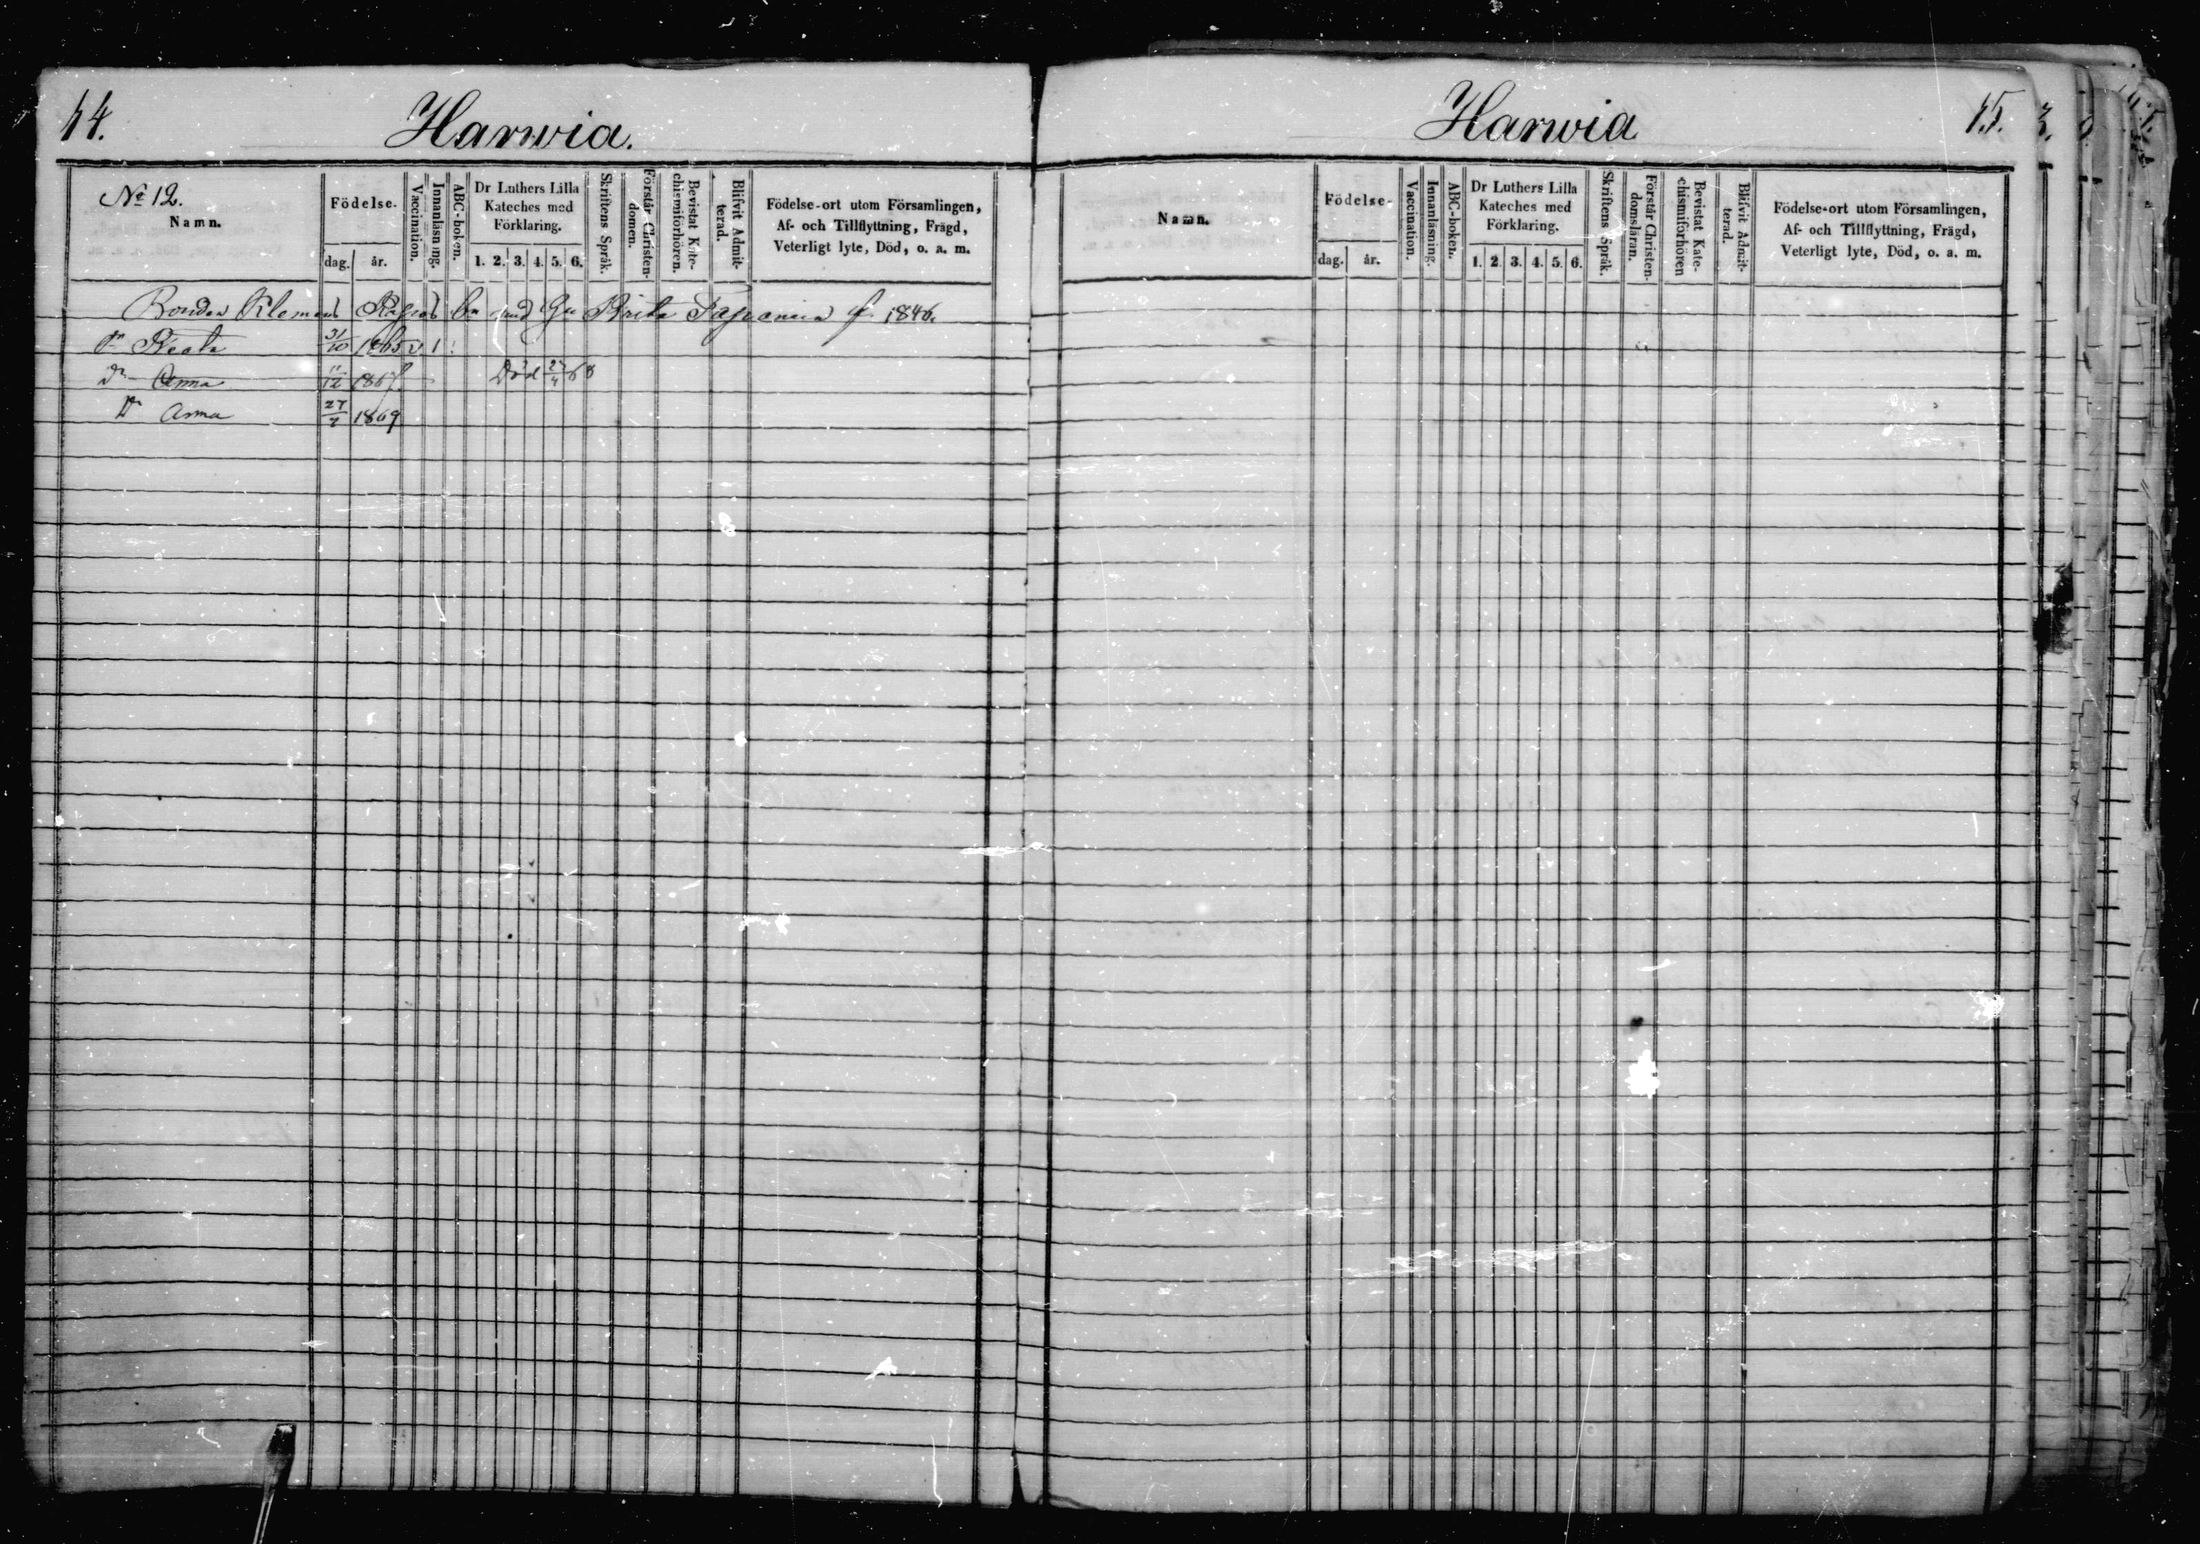 14.
Harwia.
No 12.
Namn.
Födelse.
dag. år.
Vaccination.
Innanläsning.
ABC-boken.
Dr Luthers Lilla
Kateches med
Förklaring.
1. 2. 3. 4. 5. 6.
Skriftens Språk.
Förstår Christen-
domen.
Bevistat Kate-
chismiförhören.
Blifvit Admit-
terad.
Födelse-ort utom Församlingen,
Af- och Tillflyttning, Frägd,
Veterligt lyte, Död, o. a. m.
Bonden Klemens och Brita 1846.
Dr Beata 31/10 1865 v 1
Dr Anna 11/12 1867 Död 68
Dr Anna 27 1869
Harwia
15.
Namn.
Födelse-
dag. år.
Vaccination.
Innanläsning.
ABC-boken.
Dr Luthers Lilla
Kateches med
Förklaring.
1. 2. 3. 4. 5. 6.
Skriftens Språk.
Förstår Christen-
domsläran.
Bevistat Kate-
chismiförhören
Blifvit Admit-
terad.
Födelse-ort utom Församlingen,
Af- och Tillflyttning, Frägd,
Veterligt lyte, Död, o. a. m.